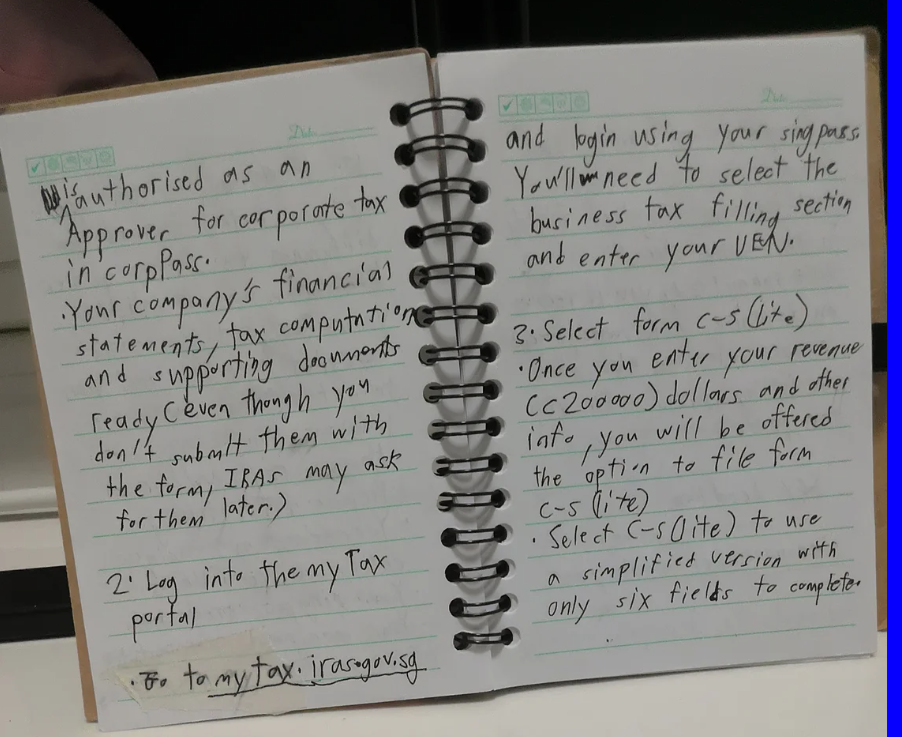 Date
is authorised as an
Approver for corporate tax
in corpPass.
·Your company's financial
statements, tax computation
and supporting documents
ready (even though you
don't submit them with
the form, IRAs may ask
for them later.)
2· Log into the my Tax
portal
·Go to my tax.iras.gov.sg
Date
and login using your singpass.
You'll need to select the
business tax filling section
and enter your UEN.
3·Select form c-s (lite)
·Once you enter your revenue
(<200000) dollars and other
info, you will be offered
the option to file form
c-s (lite)
·Select C-s (lite) to use
a simplified version with
only six fields to complete.